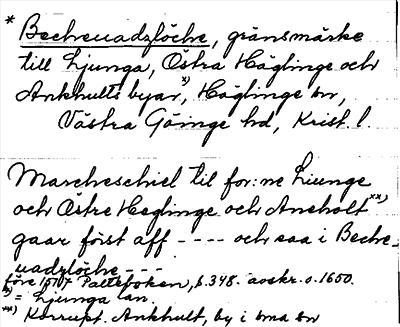 * Bechreuadzlöche, gränsmärke
till Ljunga, Östra Häglinge och
Ankhults byar x), Häglinge sn,
Västra Göinge hd, Krist. l.
Marcheschiel til for:ne Liunge
och Östre Heglinge och Aneholt xx)
gaar först aff - - - - och saa i Bechre-
uadzlöche - - -
före 1517 Palteboken, s. 348. avskr. o. 1650.
x) = Ljunga an.
xx) Korrupt. Ankhult, by i sma sn